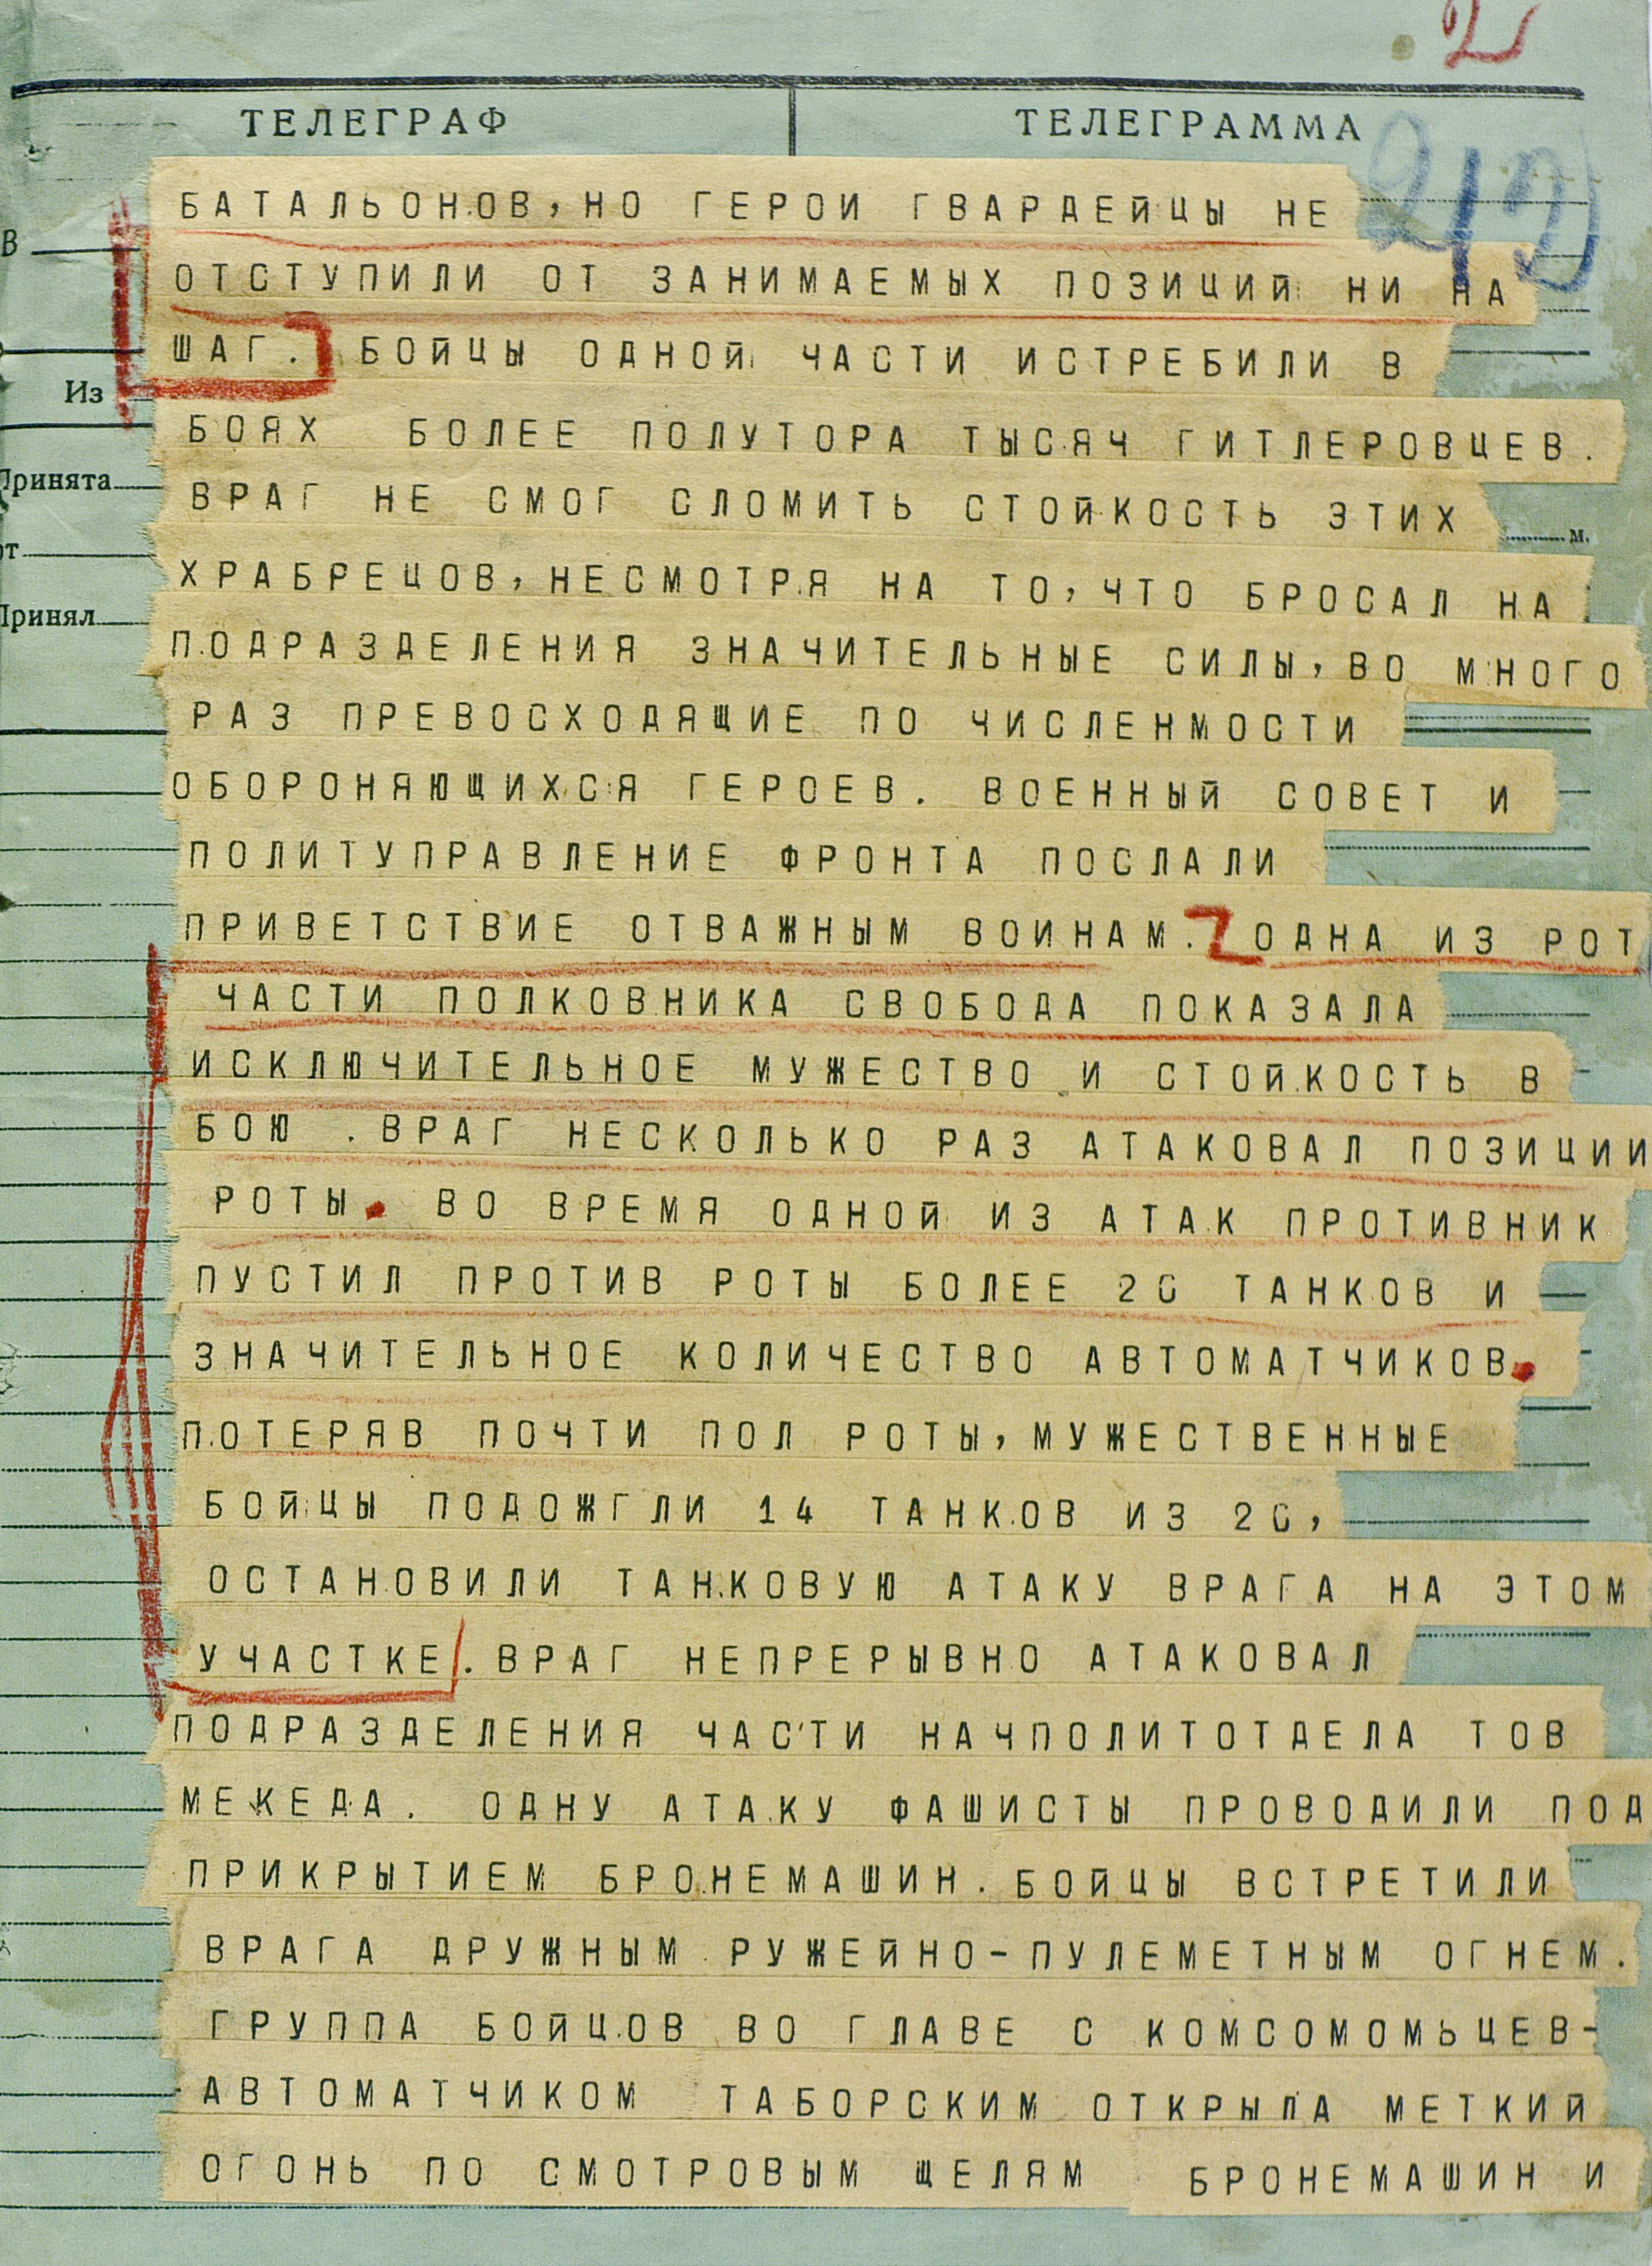 2
ТЕЛЕГРАФ ТЕЛЕГРАММА
БАТАЛЬОНОВ, НО ГЕРОИ ГВАРДЕЙЦЫ НЕ
В
ОТСТУПИЛИ ОТ ЗАНИМАЕМЫХ ПОЗИЦИЙ НИ НА
ШАГ. БОЙЦЫ ОДНОЙ ЧАСТИ ИСТРЕБИЛИ В
Из
БОЯХ БОЛЕЕ ПОЛУТОРА ТЫСЯЧ ГИТЛЕРОВЦЕВ.
Принята
ВРАГ НЕ СМОГ СЛОМИТЬ СТОЙКОСТЬ ЭТИХ
м.
от
ХРАБРЕЦОВ, НЕСМОТРЯ НА ТО, ЧТО БРОСАЛ НА
Принял
ПОДРАЗДЕЛЕНИЯ ЗНАЧИТЕЛЬНЫЕ СИЛЫ, ВО МНОГО
РАЗ ПРЕВОСХОДЯЩИЕ ПО ЧИСЛЕНМОСТИ
ОБОРОНЯЮЩИХСЯ ГЕРОЕВ. ВОЕННЫЙ СОВЕТ И
ПОЛИТУПРАВЛЕНИЕ ФРОНТА ПОСЛАЛИ
ПРИВЕТСТВИЕ ОТВАЖНЫМ ВОИНАМ. ОДНА ИЗ РОТ
ЧАСТИ ПОЛКОВНИКА СВОБОДА ПОКАЗАЛА
ИСКЛЮЧИТЕЛЬНОЕ МУЖЕСТВО И СТОЙКОСТЬ В
БОЮ . ВРАГ НЕСКОЛЬКО РАЗ АТАКОВАЛ ПОЗИЦИИ
РОТЫ. ВО ВРЕМЯ ОДНОЙ ИЗ АТАК ПРОТИВНИК
ПУСТИЛ ПРОТИВ РОТЫ БОЛЕЕ 20 ТАНКОВ И
ЗНАЧИТЕЛЬНОЕ КОЛИЧЕСТВО АВТОМАТЧИКОВ.
ПОТЕРЯВ ПОЧТИ ПОЛ РОТЫ, МУЖЕСТВЕННЫЕ
БОЙЦЫ ПОДОЖГЛИ 14 ТАНКОВ ИЗ 20,
ОСТАНОВИЛИ ТАНКОВУЮ АТАКУ ВРАГА НА ЭТОМ
УЧАСТКЕ. ВРАГ НЕПРЕРЫВНО АТАКОВАЛ
ПОДРАЗДЕЛЕНИЯ ЧАСТИ НАЧПОЛИТОТДЕЛА ТОВ
МЕКЕДА. ОДНУ АТАКУ ФАШИСТЫ ПРОВОДИЛИ ПОД
ПРИКРЫТИЕМ БРОНЕМАШИН. БОЙЦЫ ВСТРЕТИЛИ
ВРАГА ДРУЖНЫМ РУЖЕЙНО-ПУЛЕМЕТНЫМ ОГНЕМ.
ГРУППА БОЙЦОВ ВО ГЛАВЕ С КОМСОМОМЬЦЕВ-
АВТОМАТЧИКОМ ТАБОРСКИМ ОТКРЫЛА МЕТКИЙ
ОГОНЬ ПО СМОТРОВЫМ ЩЕЛЯМ БРОНЕМАШИН И